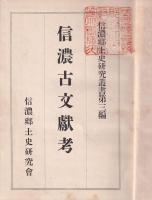 信濃郷土史研究叢書第三編
信濃古文獻考
信濃郷土史研究會